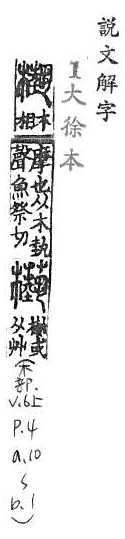 說文解字
1大徐本
槸 木相摩也从木埶聲魚祭切 槸或从艸
(木部.
V.6上
P.4
a.10
s
b.1)